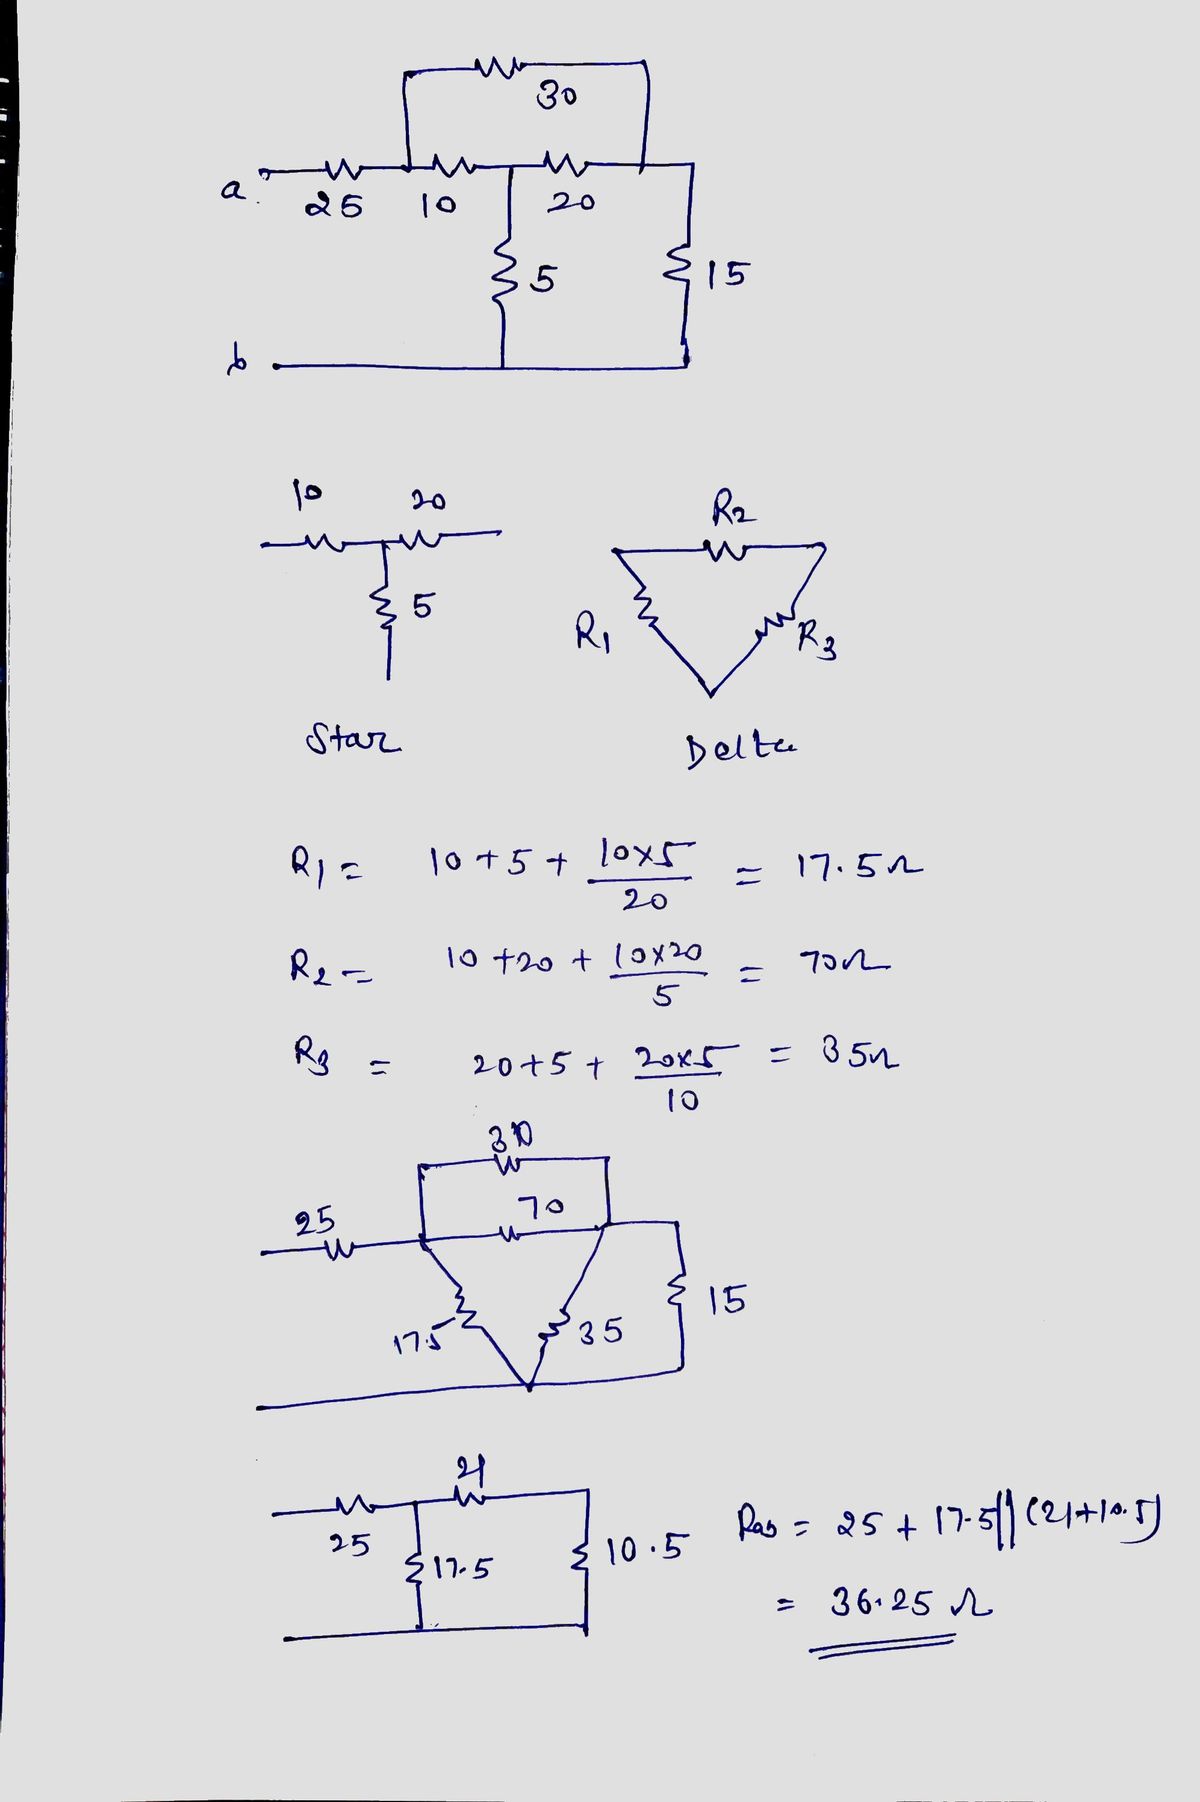 30
a 25 10 20
5 15
b
10 20 R2
5 R1 R3
Star Delta
R1 = 10 + 5 + 10x5/20 = 17.5Ω
R2 = 10 + 20 + 10x20/5 = 70Ω
R3 = 20 + 5 + 20x5/10 = 35Ω
30
25 70
17.5 35 15
21
25 17.5 10.5 Rab = 25 + 17.5||(21+10.5)
= 36.25 Ω